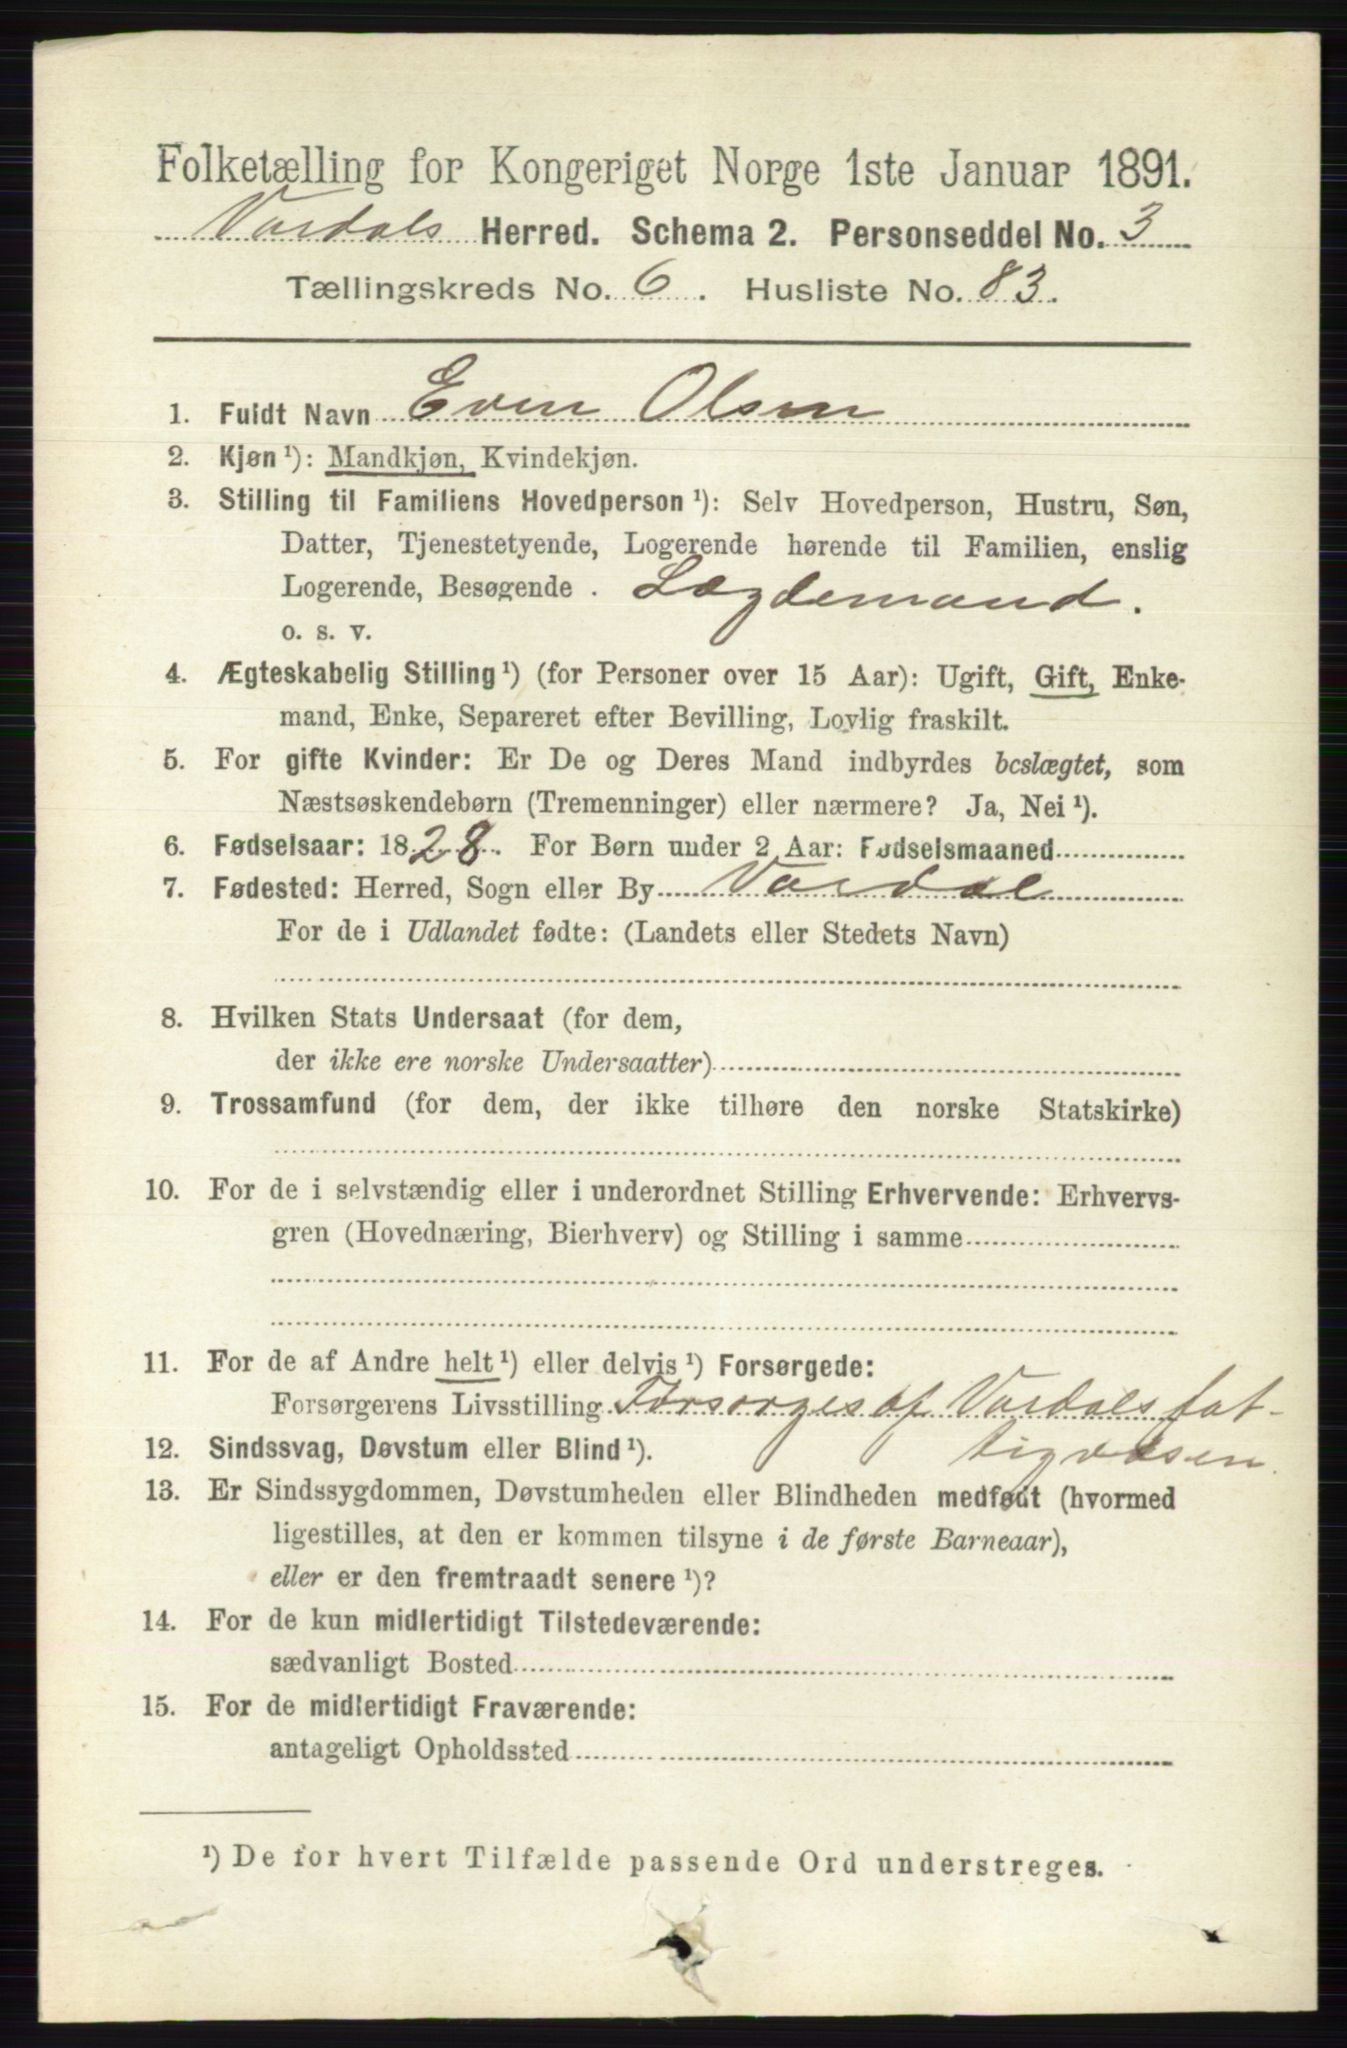 Folketælling for Kongeriget Norge 1ste Januar 1891.
Vardals Herred. Schema 2. Personseddel No. 3
Tællingskreds No. 6. Husliste No. 83.
1. Fuldt Navn Even Olsen
2. Kjøn ¹): Mandkjøn, Kvindekjøn.
3. Stilling til Familiens Hovedperson ¹): Selv Hovedperson, Hustru, Søn,
Datter, Tjenestetyende, Logerende hørende til Familien, enslig
Logerende, Besøgende . Lægdemand.
o. s. v.
4. Ægteskabelig Stilling ¹) (for Personer over 15 Aar): Ugift, Gift, Enke-
mand, Enke, Separeret efter Bevilling, Lovlig fraskilt.
5. For gifte Kvinder: Er De og Deres Mand indbyrdes beslægtet, som
Næstsøskendebørn (Tremenninger) eller nærmere? Ja, Nei ¹).
6. Fødselsaar: 1828. For Børn under 2 Aar: Fødselsmaaned
7. Fødested: Herred, Sogn eller By Vardal
For de i Udlandet fødte: (Landets eller Stedets Navn)
8. Hvilken Stats Undersaat (for dem,
der ikke ere norske Undersaatter)
9. Trossamfund (for dem, der ikke tilhøre den norske Statskirke)
10. For de i selvstændig eller i underordnet Stilling Erhvervende: Erhvervs-
gren (Hovednæring, Bierhverv) og Stilling i samme
11. For de af Andre helt ¹) eller delvis ¹) Forsørgede:
Forsørgerens Livsstilling Forsørges af Vardals fat-
tigvæsen.
12. Sindssvag, Døvstum eller Blind ¹).
13. Er Sindssygdommen, Døvstumheden eller Blindheden medfødt (hvormed
ligestilles, at den er kommen tilsyne i de første Barneaar),
eller er den fremtraadt senere ¹)?
14. For de kun midlertidigt Tilstedeværende:
sædvanligt Bosted
15. For de midlertidigt Fraværende:
antageligt Opholdssted
¹) De for hvert Tilfælde passende Ord understreges.